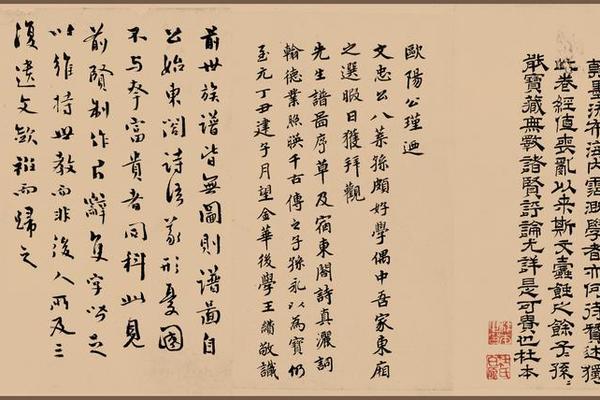 翰墨流布海內霑溉學者亦何待贊述獨
此卷經值喪亂以來斯文蠹蝕之餘子孫〻
能寶藏無斁諸賢評論尤詳是可貴也杜本
歐陽公瑾迺
文忠公八葉孫頗好學偶中吾家東廂
之選暇日獲拜觀
先生譜圖序草及宿東閣詩真灑詞
翰德業照暎千古傳之子孫永以為寶仍
至元丁丑建子月望金華後學王敬識
前世族譜皆無圖則譜圖自
公始東閣詩語形憂國
不与奪富貴者同科此見
前賢制作片辭隻字皆足
以維持世教而非後人所及三
復遺文斂衽而歸之